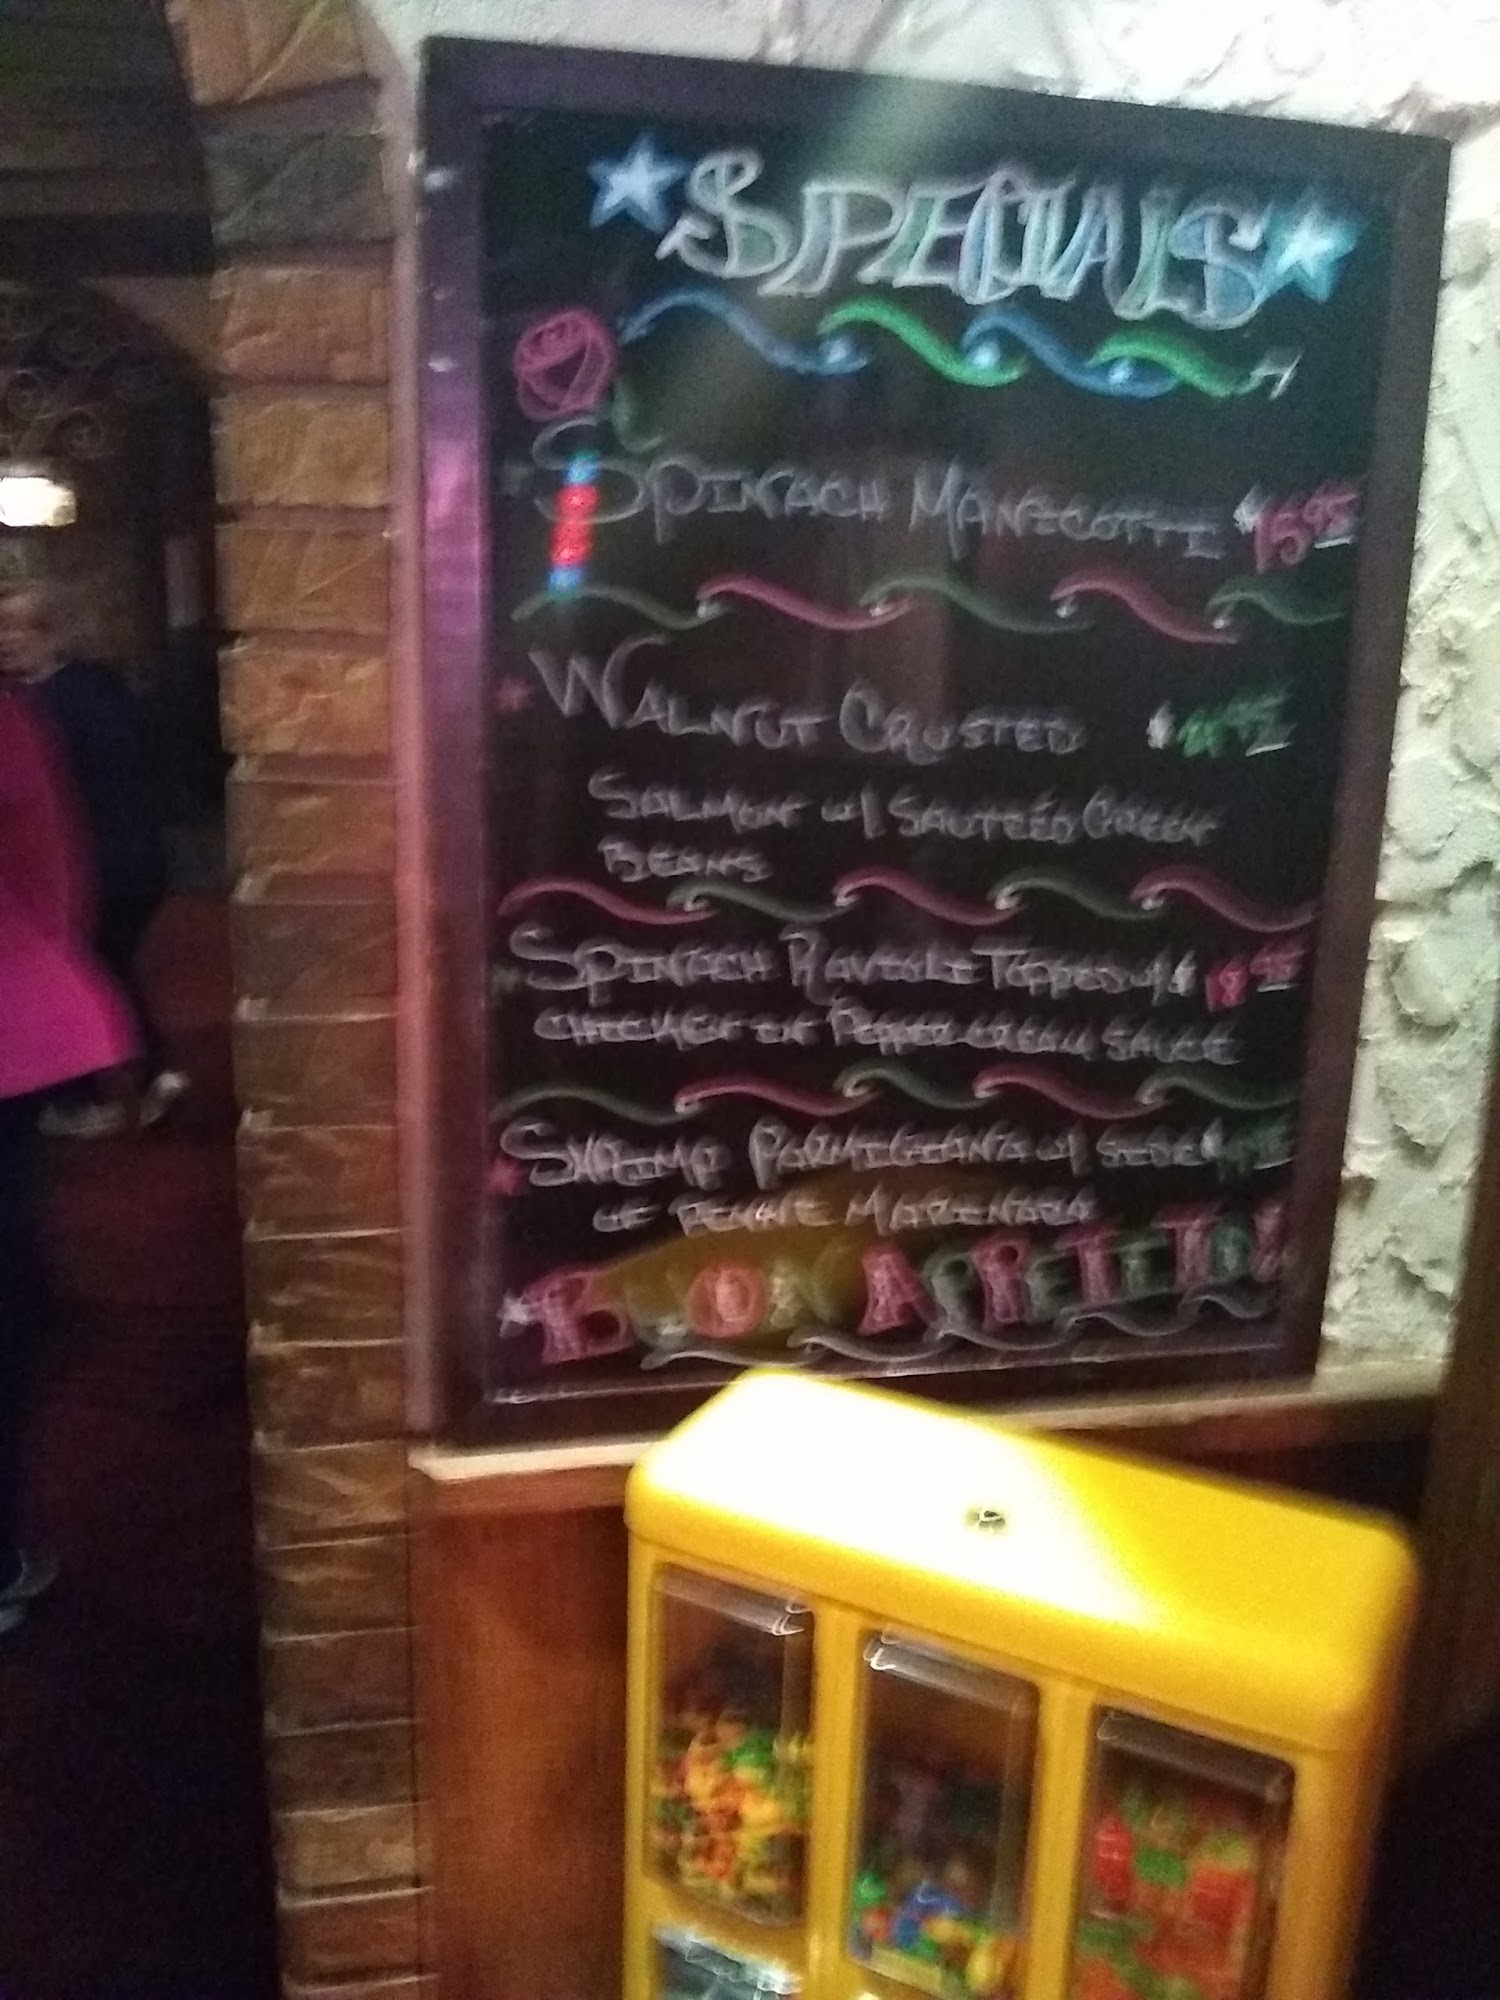 SPECIALS
SPINACH MANICOTTI $15.95
WALNUT CRUSTED $
SALMON W/ SAUTÉED GREEN
BEANS
SPINACH RAVIOLI TOPPED W/ $18.95
CHICKEN IN PEPPER CREAM SAUCE
SHRIMP PARMIGIANA W/ SIDE
OF PENNE MARINARA
BON APPETITO!